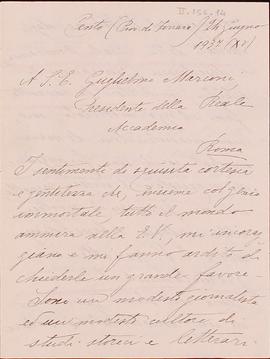 II.156.14
Cento (Prov. di Ferrara) 24 Giugno
1937 (XV)
A S. E. Guglielmo Marconi
Presidente della Reale
Accademia
Roma
I sentimenti di squisita cortesia
e gentilezza che, insieme col genio
immortale, tutto il mondo
ammira nella E. V., mi incorag
giano e mi fanno ardito di
chiederle un grande favore.
Sono un modesto giornalista
ed un modesto cultore di
studi storici e letterari.